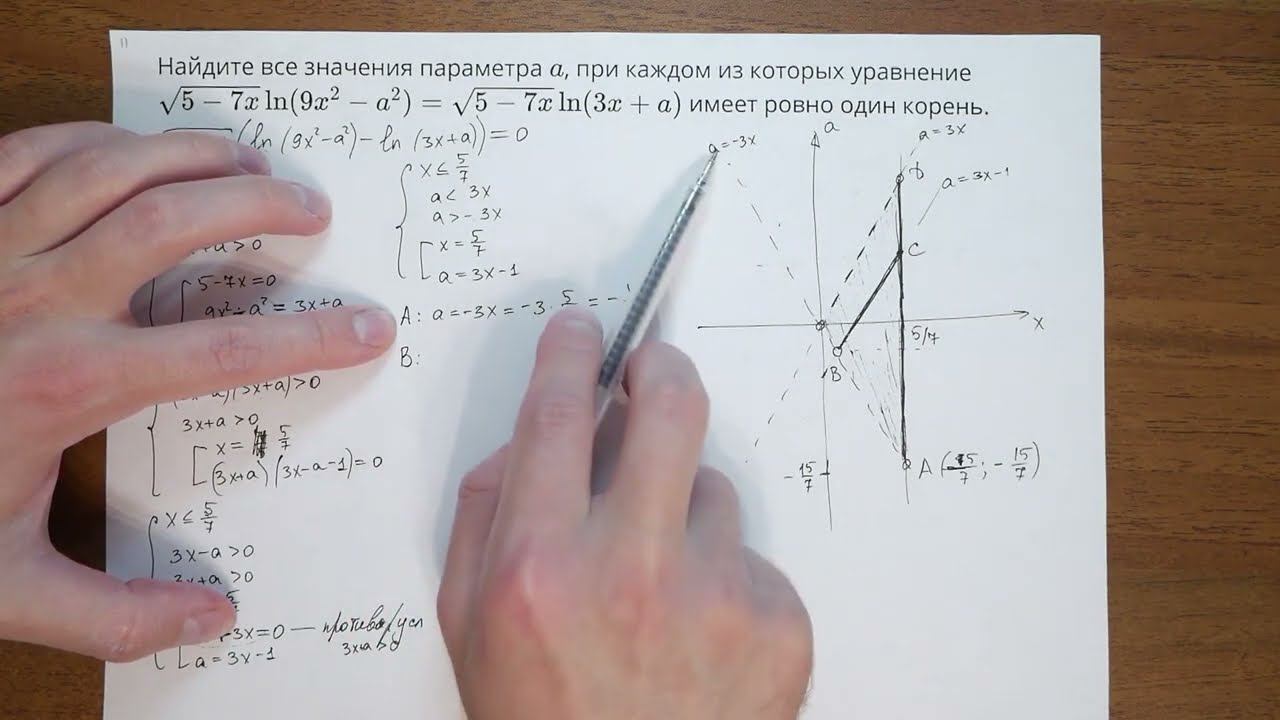 Найдите все значения параметра a, при каждом из которых уравнение
√(5 − 7x) ln(9x² − a²) = √(5 − 7x) ln(3x + a) имеет ровно один корень.
(ln (9x²-a²) - ln (3x+a)) = 0
+a > 0
5-7x=0
9x²-a² = 3x+a
(3x+a) > 0
3x+a > 0
x = 5/7
(3x+a)(3x-a-1) = 0
x ≤ 5/7
3x-a > 0
3x+a > 0
+3x=0 — против. усл
3x+a > 0
a = 3x-1
x ≤ 5/7
a < 3x
a > -3x
x = 5/7
a = 3x-1
A: a = -3x = -3 · 5/7 = -
B:
a = -3x
a
a = 3x
D
a = 3x-1
C
x
5/7
B
-15/7
A ( /7; -15/7)